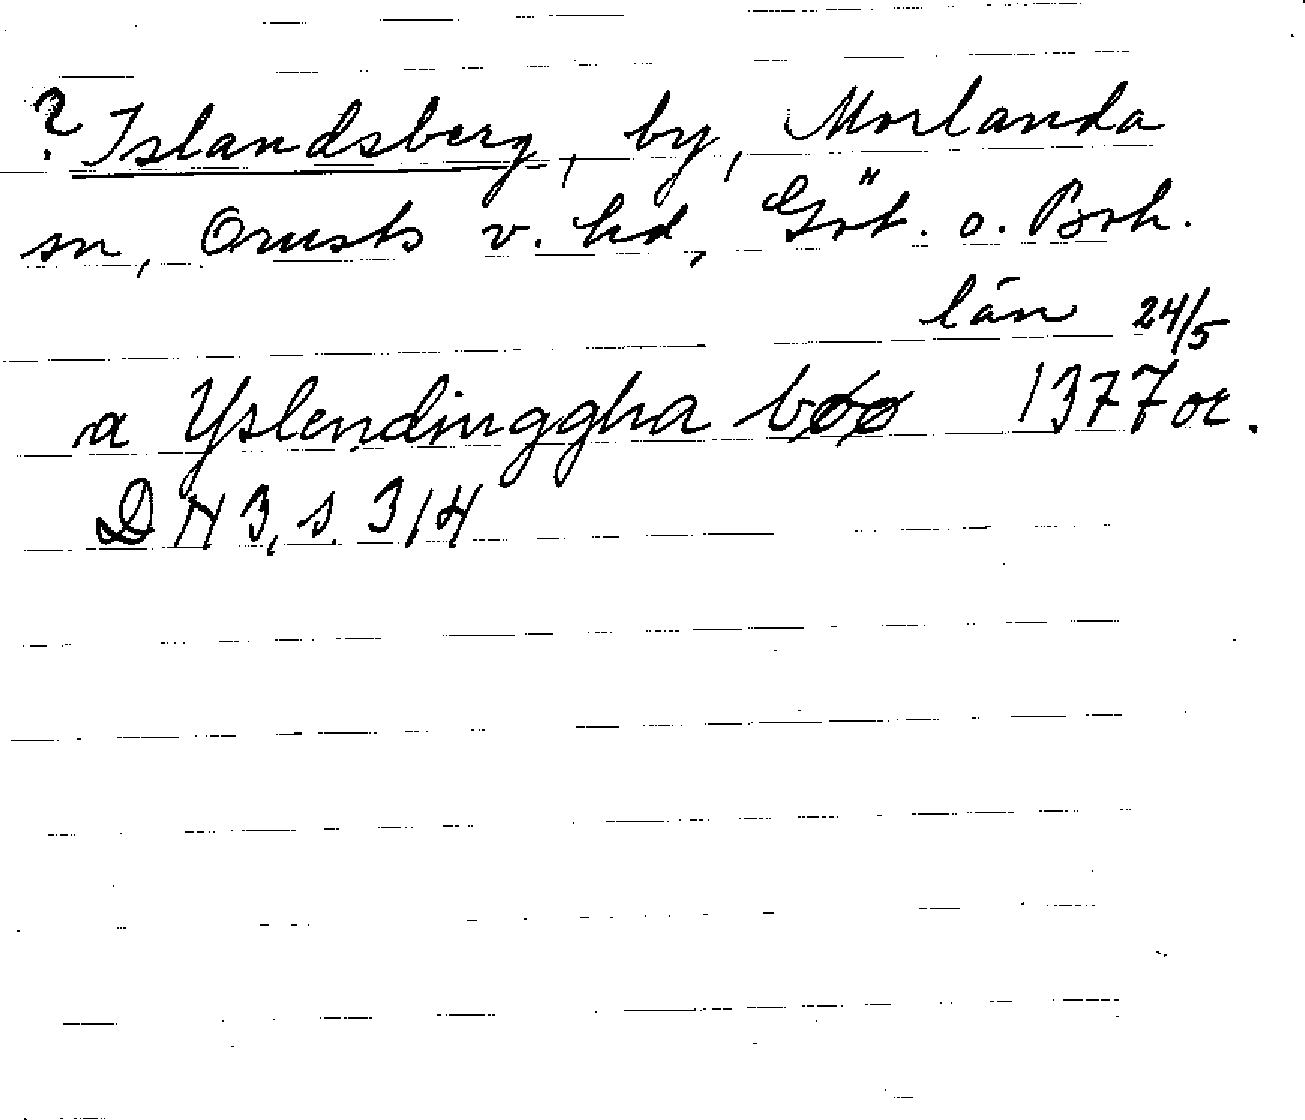 ? Islandsberg, by, Morlanda
sn, Orusts v. hd, Göt. o. Boh.
län 24/5
a Yslendinggha bøø 1377 or.
DN 3, s. 314